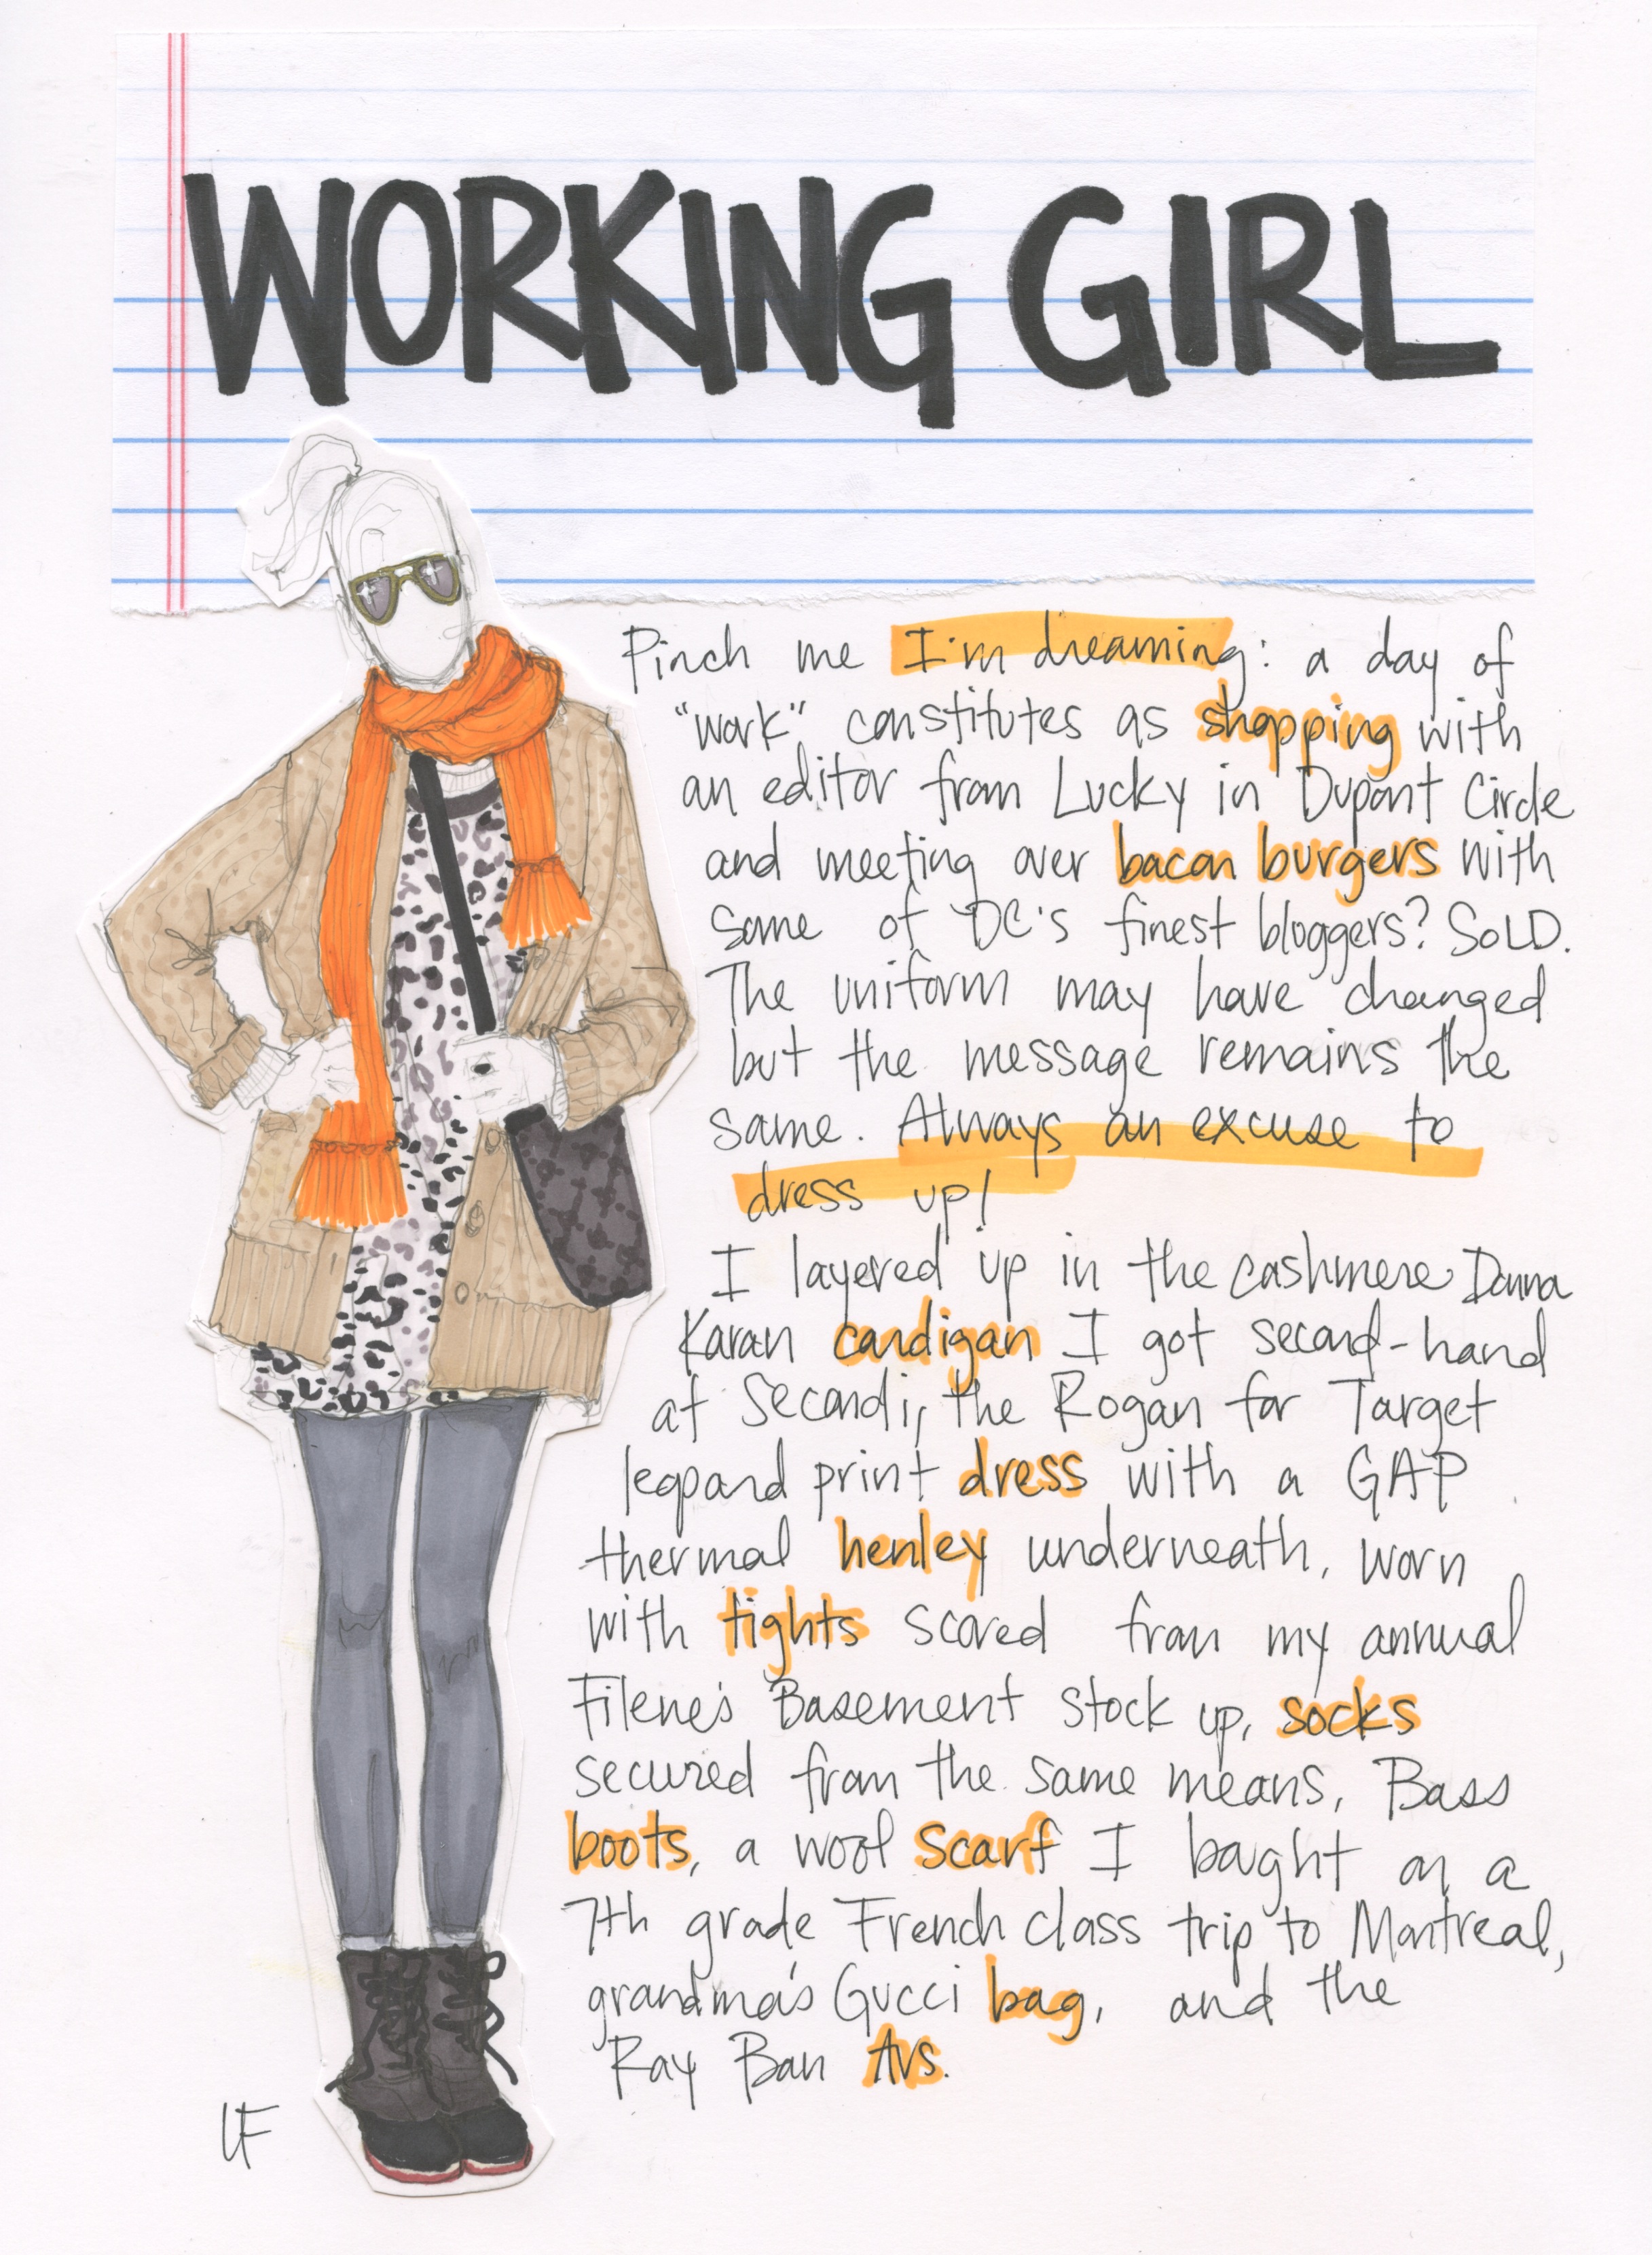 WORKING GIRL
Pinch me I'm dreaming: a day of
"work" constitutes as shopping with
an editor from Lucky in Dupont Circle
and meeting over bacon burgers with
some of DC's finest bloggers? SOLD.
The uniform may have changed
but the message remains the
same. Always an excuse to
dress up!
I layered up in the cashmere Donna
Karan cardigan I got second-hand
at Secondi, the Rogan for Target
leopard print dress with a GAP
thermal henley underneath, worn
with tights scored from my annual
Filene's Basement stock up, socks
secured from the same means, Bass
boots, a wool scarf I bought on a
7th grade French class trip to Montreal,
grandma's Gucci bag, and the
Ray Ban Avs.
LF